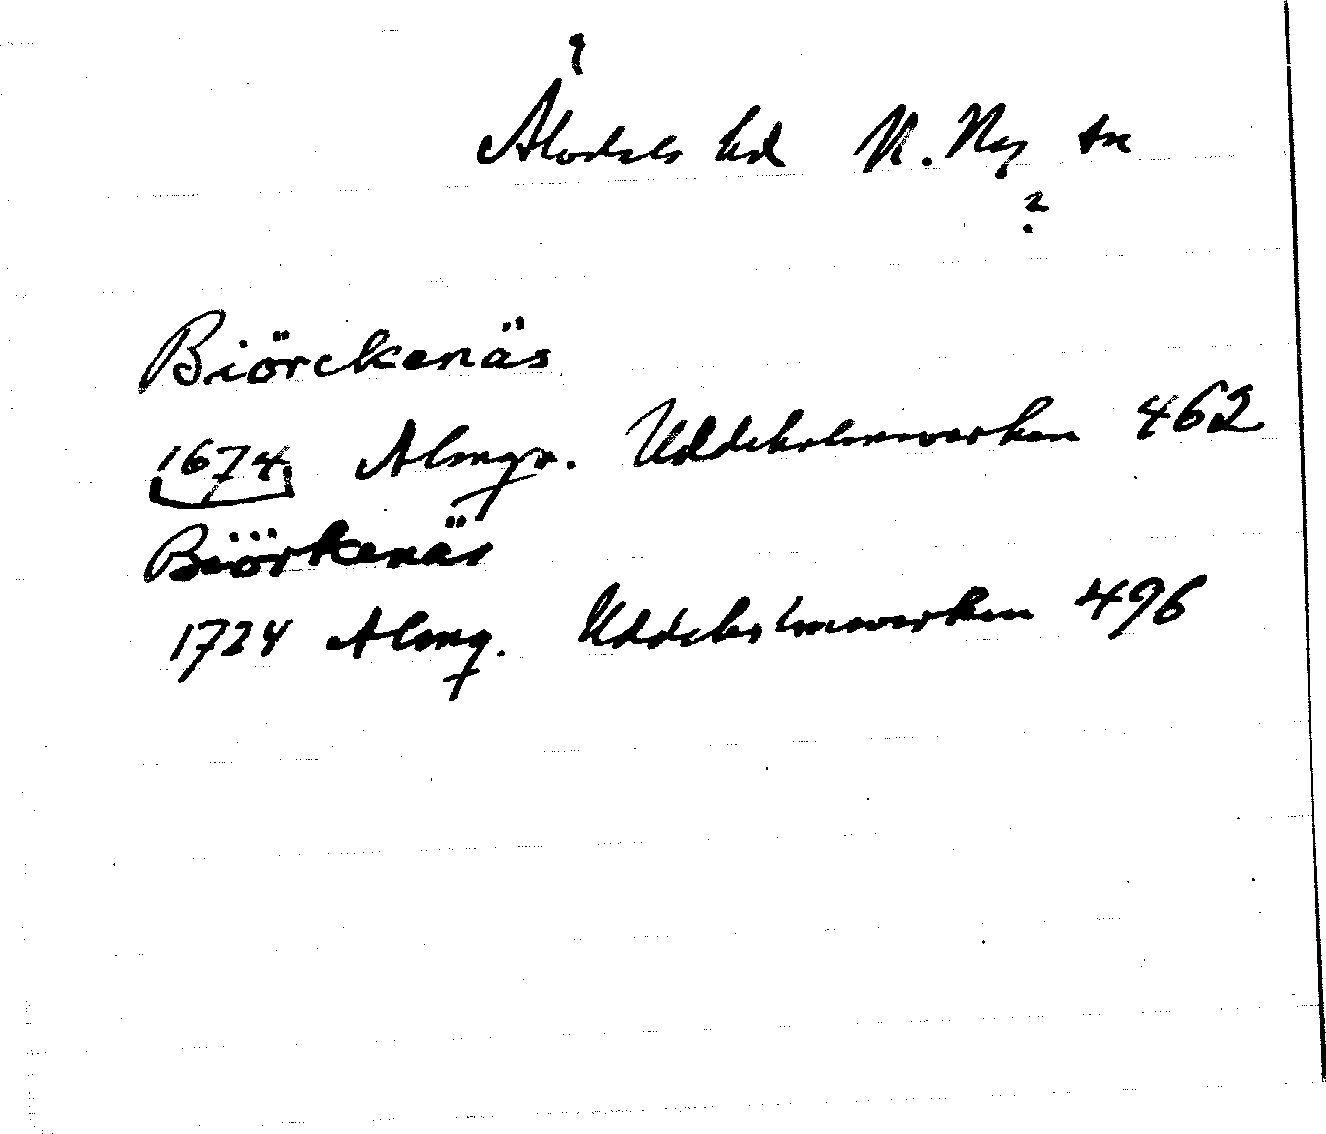 Älvdals hd N. Ny sn
?
Biörckenäs
1674 Almgr. Uddeholmsverken 462
Biörkenäs
1724 Almq. Uddeholmsverken 496